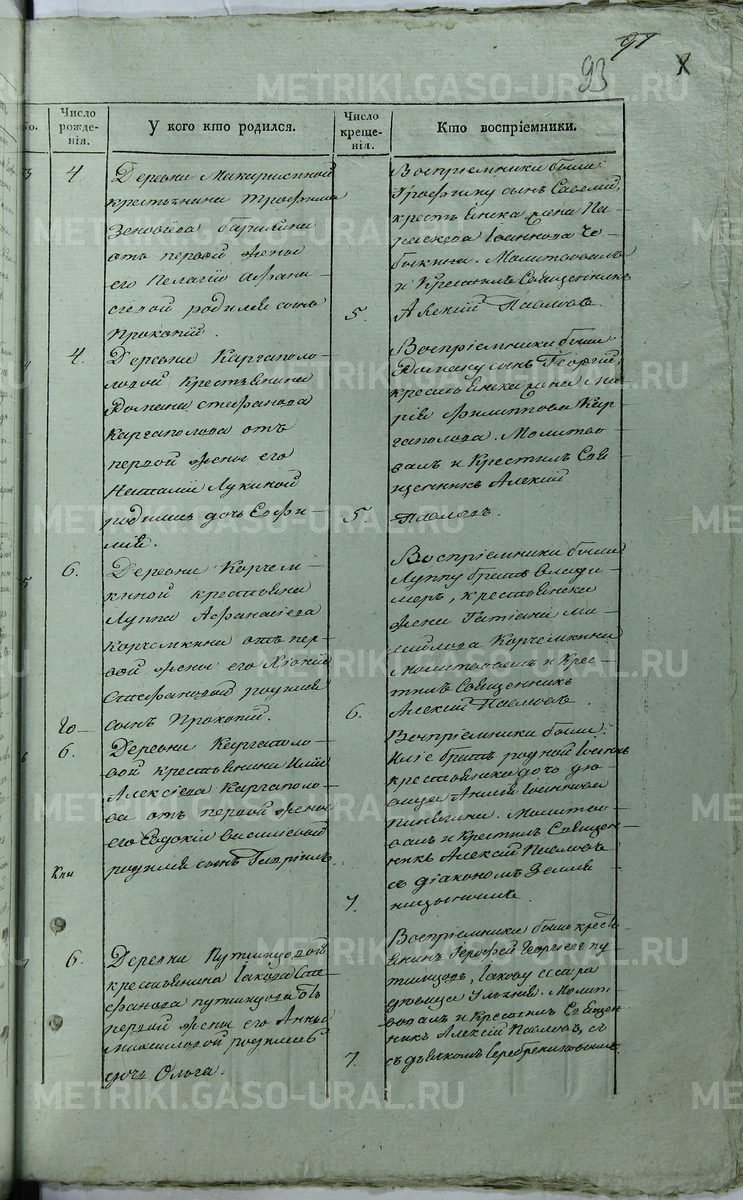 97
93
METRIKI.GASO-URAL.RU
Число рожде-нія.
У кого кто родился.
Число креще-нія.
Кто воспріемники.
3
4.
Деревни
крестьянина Трофима
Зеновіева
отъ первой жены
его Пелагіи Афана-
сіевой родился сынъ
Прокопій.
Воспріемники были
Трофиму сынъ Савелій,
крестьянска жена Па-
раскева Іоаннова
Молитвовалъ
и Крестилъ Священникъ
5. Алексій Павловъ
4
4.
Деревни Каргапо-
ловой крестьянина
Романа Стефанова
Каргаполова отъ
первой жены его
Наталіи Лукиной
родилась дочь Евфи-
мія.
Воспріемники были
Роману сынъ Георгій,
крестьянска жена Ма-
рія Филиппова Кар-
гаполова. Молитво-
валъ и Крестилъ Свя-
щенникъ Алексій
5 Павловъ.
5
6.
Деревни Корчем-
киной крестьянина
Луппа Афанасіева
Корчемкина отъ пер-
вой жены его
Стефановой родился
сынъ Прокопій.
Воспріемники были
Луппу братъ Влади-
меръ, крестьянска
жена Татіана Ми-
хайлова Корчемкина
молитвовалъ и Крес-
тилъ Священникъ
6. Алексій Павловъ.
Го-
6
6.
Деревни Каргапо-
вой крестьянина Иліи
Алексіева Каргаполо-
ва отъ первой жены
его Евдокіи Василіевой
родился сынъ Гавріилъ.
Воспріемники были
Иліе братъ родной Іоаннъ
крестьянска дочь дѣ-
вица Анна Іоаннова
Молитво-
валъ и Крестилъ Священ-
никъ Алексій Павловъ
съ діакономъ Земля-
7. ницынымъ
Кни
7
6.
Деревни Путимцовой
крестьянина Іакова Сте-
фанова Путимцова отъ
первой жены его Анны
Михайловой родилась
дочь Ольга.
Воспріемники были кресть-
янинъ Ерофей Георгіевъ Пу-
тимцовъ, Іакову сестра
дѣвица Ульяна. Молит-
вовалъ и Крестилъ Священ-
никъ Алексій Павловъ, съ
7. съ дьячкомъ Серебрениковымъ